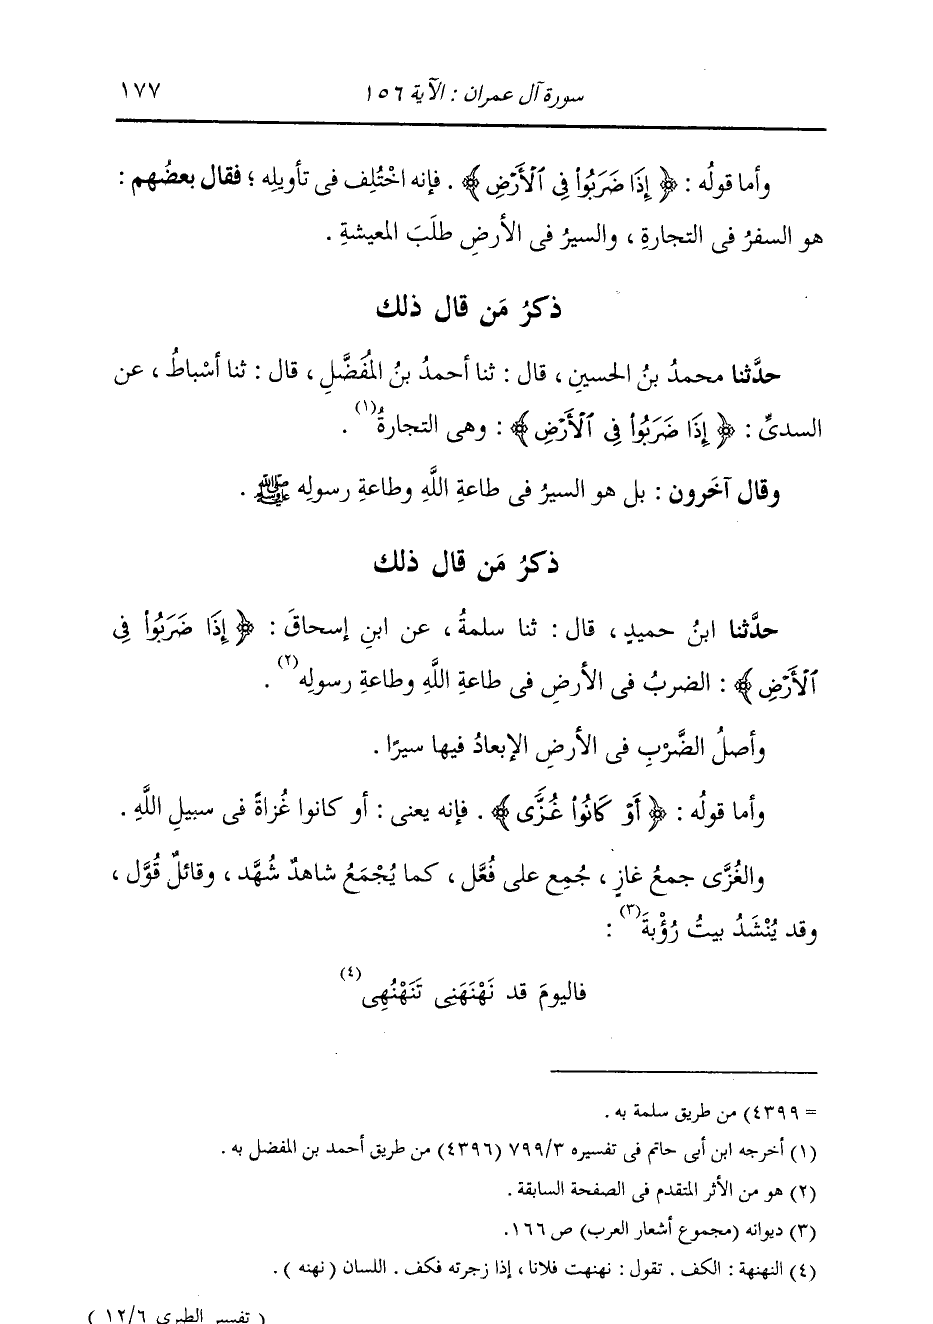 سورة آل عمران : الآية ١٥٦ ١٧٧
وأما قولُه : ﴿ إِذَا ضَرَبُوا۟ فِى ٱلْأَرْضِ ﴾ . فإنه اخْتُلِف فى تأويلِه ؛ فقال بعضُهم :
هو السفرُ فى التجارةِ ، والسيرُ فى الأرضِ طلَبَ المعيشةِ .
ذكرُ مَن قال ذلك
حدَّثنا محمدُ بنُ الحسينِ ، قال : ثنا أحمدُ بنُ المُفَضَّلِ ، قال : ثنا أسْباطُ ، عن
السدىِّ : ﴿ إِذَا ضَرَبُوا۟ فِى ٱلْأَرْضِ ﴾ : وهى التجارةُ(١) .
وقال آخَرون : بل هو السيرُ فى طاعةِ اللَّهِ وطاعةِ رسولِه ﷺ .
ذكرُ مَن قال ذلك
حدَّثنا ابنُ حميدٍ ، قال : ثنا سلمةُ ، عن ابنِ إسحاقَ : ﴿ إِذَا ضَرَبُوا۟ فِى
ٱلْأَرْضِ ﴾ : الضربُ فى الأرضِ فى طاعةِ اللَّهِ وطاعةِ رسولِه(٢) .
وأصلُ الضَّرْبِ فى الأرضِ الإبعادُ فيها سيرًا .
وأما قولُه : ﴿ أَوْ كَانُوا۟ غُزًّى ﴾ . فإنه يعنى : أو كانوا غُزاةً فى سبيلِ اللَّهِ .
والغُزَّى جمعُ غازٍ ، جُمِع على فُعَّل ، كما يُجْمَعُ شاهدٌ شُهَّد ، وقائلٌ قُوَّل ،
وقد يُنْشَدُ بيتُ رُؤْبةَ(٣) :
فاليومَ قد نَهْنَهَنِى تَنَهْنُهِى(٤)
= ٤٣٩٩) من طريق سلمة به .
(١) أخرجه ابن أبى حاتم فى تفسيره ٧٩٩/٣ (٤٣٩٦) من طريق أحمد بن المفضل به .
(٢) هو من الأثر المتقدم فى الصفحة السابقة .
(٣) ديوانه (مجموع أشعار العرب) ص ١٦٦.
(٤) النهنهة : الكف . تقول : نهنهت فلانا ، إذا زجرته فكف . اللسان ( نهنه ) .
( تفسير الطبرى ١٢/٦ )